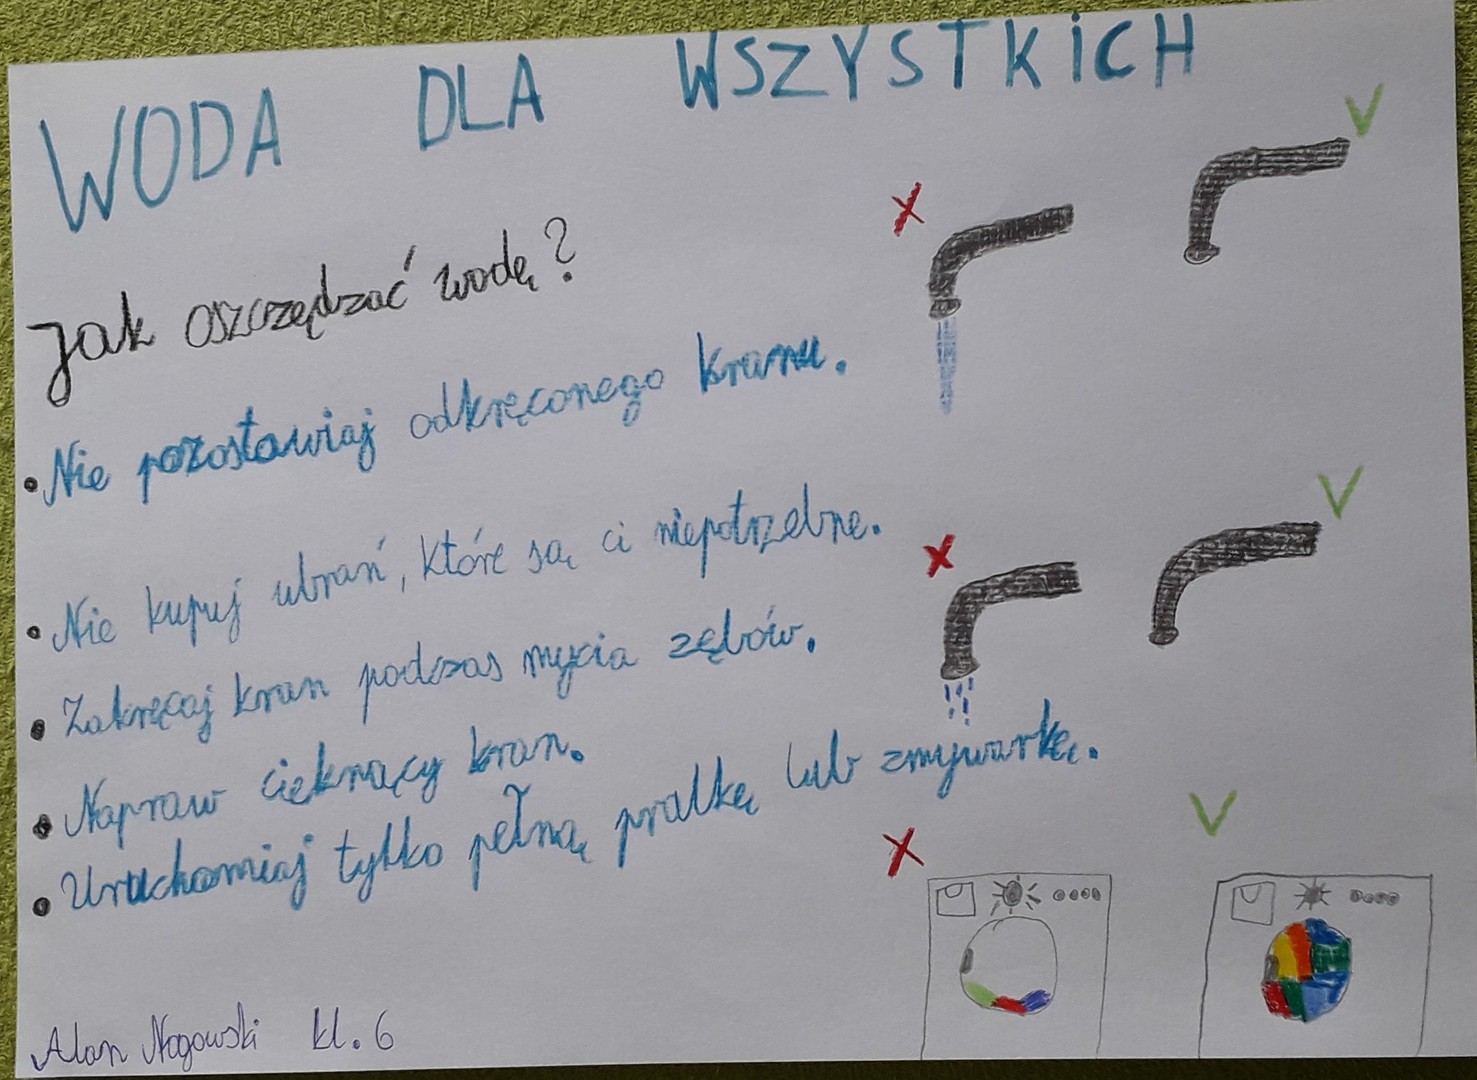 WODA DLA WSZYSTKICH
Jak oszczędzać wodę?
• Nie pozostawiaj odkręconego kranu.
• Nie kupuj ubrań, które są ci niepotrzebne.
• Zakręcaj kran podczas mycia zębów.
• Napraw cieknący kran.
• Uruchamiaj tylko pełną pralkę lub zmywarkę.
Alan Nogowski kl. 6